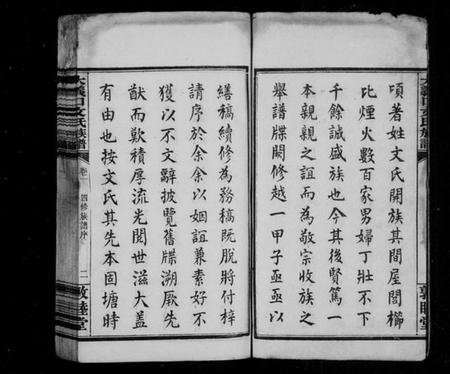 項著姓文氏開族其間屋閭櫛
比煙火數百家男婦丁壯不下
千餘誠盛族也今其後賢篤一
本親親之誼而為敬宗收族之
舉譜牒闕修越一甲子亟亟以
繕稿續修為務稿既脫將付梓
請序於余余以姻誼兼素好不
獲以不文辭披覽舊牒溯厥先
猷而歎積厚流光閱世滋大蓋
有由也按文氏其先本固塘時
文氏族譜
卷
四修族譜序
二
敦睦堂